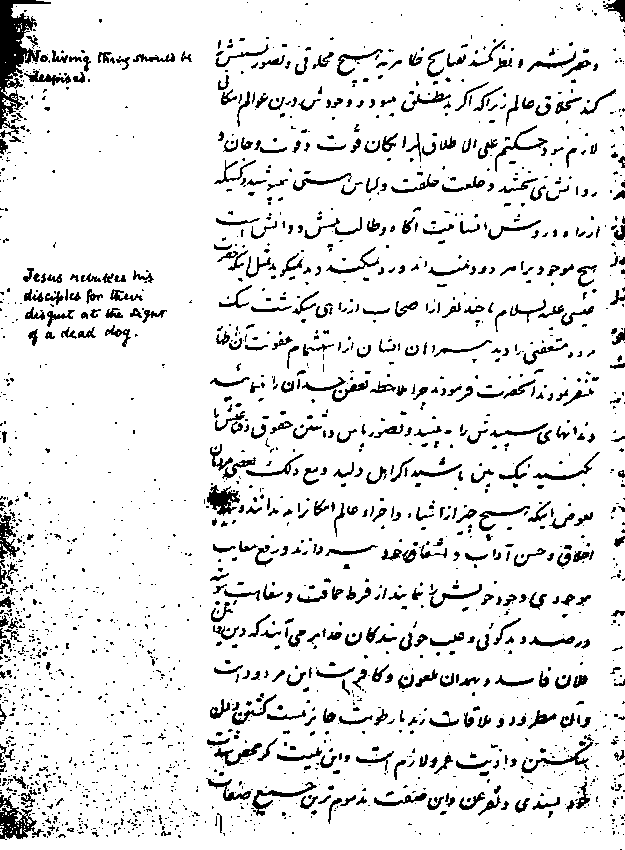 No living thing should be
despised.
Jesus rebukes his
disciples for their
disgust at the sight
of a dead dog.
و حقیر نشمرد نظر نکنند بقبایح ظاهریه هیچ مخلوقی و تصور نیستش را
کند بخلاق عالم زیرا که اگر وجودش درین عوالم امکانی
لازم نبود حکیم علی الاطلاق برایگان قوت و قوت و جان و
روانش نمی بخشید و خلعت خلقت و لباس هستی نمیپوشید و کسیکه
از راه و روش انسانیت آگاه و طالب بینش و دانش است
هیچ موجود برا مردود نمیداند و رد نمیکند و بد نمیگوید مثل اینکه حضرت
عیسی علیه السلام با چند نفر از اصحاب از راهی میگذشت سگ
مرده متعفنی را دید همراهان ایشان از استشمام عفونت آن
تنفر نمودند آنحضرت فرمودند چرا ملاحظه تعفن جسد آن را نمائید
دندانهای سپیدش را به بینید و تصور پاس داشتن حقوق
بکنید نیک بین باشید اگر اهل دلید و مع ذلک بعضی مردمان
بعوض اینکه هیچ چیز از اشیاء و اجزاء عالم امکانرا بد ندانند
اخلاق و حسن آداب و اشفاق خود پردازند و رفع معایب
موجودی وجود خویش را نمایند از فرط حماقت و سفاهت
در صدد بدگوئی و عیب جوئی بندگان خدا بر می آیند که دین
فلان فاسد و بهمدان ملعون و کافر است این مردود است
و آن مطرود و ملاقات زید با رطوبت جایز نیست کشتن
شکستن و اذیت عمرو لازم است و این نیست مگر محض
خود پسندی و تفرعن و این صفت مذموم ترین جمیع صفات